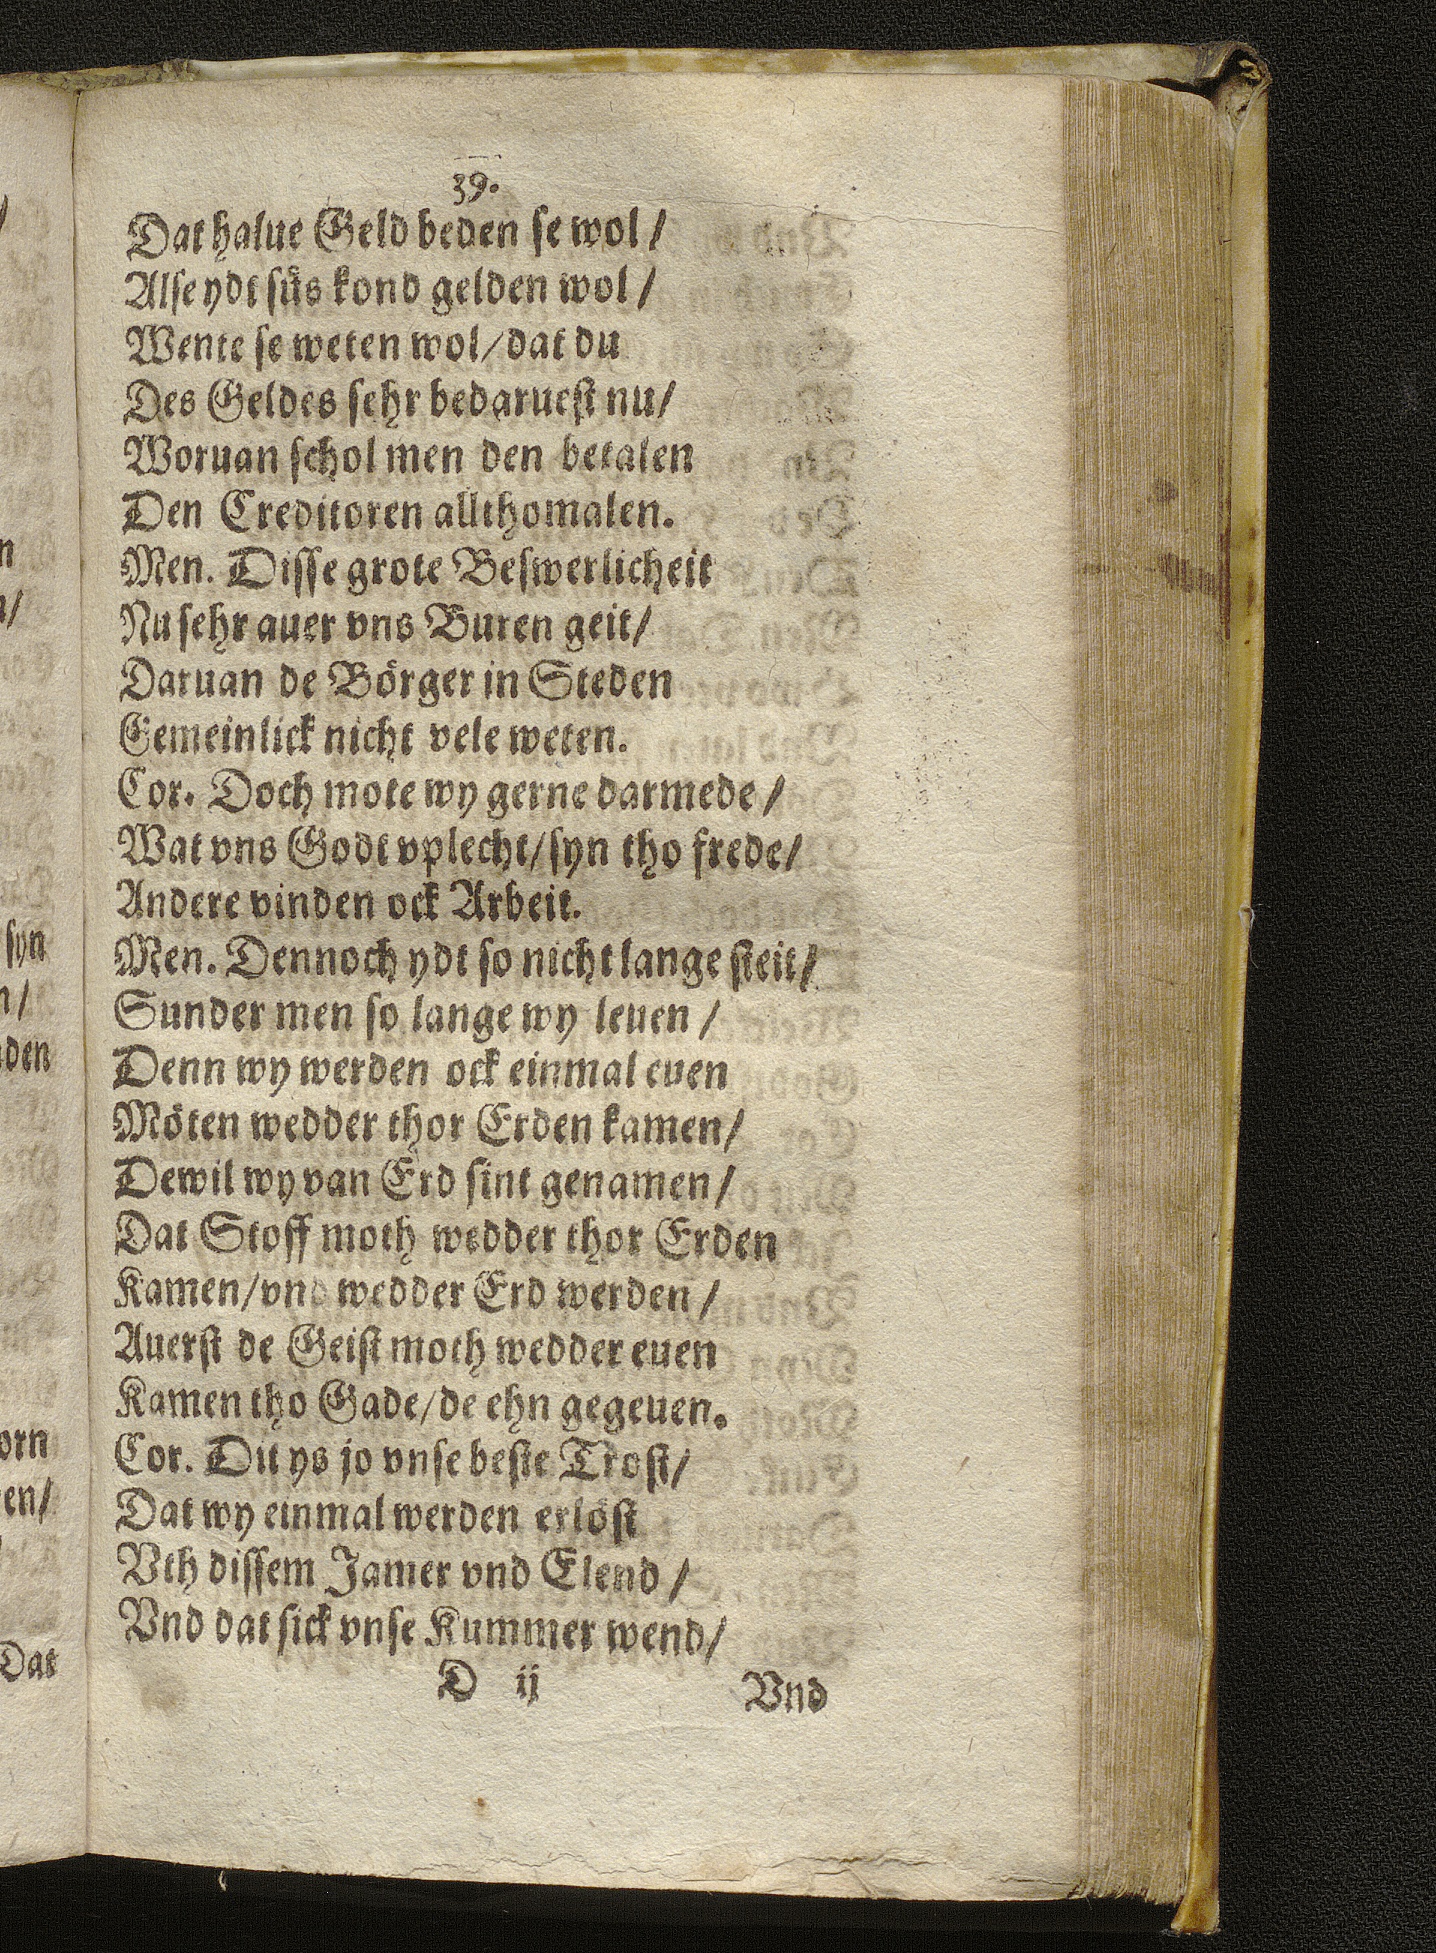 39.
Dat halue Geld beden se wol /
Alse ydt süs kond gelden wol /
Wente se weten wol / dat du
Des Geldes sehr bedaruest nu /
Woruan schol men den betalen
Den Creditoren allthomalen.
Men. Disse grote Beswerlicheit
Nu sehr auer vns Buren geit /
Daruan de Börger in Steden
Gemeinlick nicht vele weten.
Cor. Doch mote wy gerne darmede /
Wat vns Godt vplecht / syn tho frede /
Andere vinden ock Arbeit.
Men. Dennoch ydt so nicht lange steit /
Sunder men so lange wy leuen /
Denn wy werden ock einmal euen
Möten wedder thor Erden kamen /
Dewil wy van Erd sint genamen /
Dat Stoff moth wedder thor Erden
Kamen / vnd wedder Erd werden /
Auerst de Geist moth wedder euen
Kamen tho Gade / de ehn gegeuen.
Cor. Dit ys jo vnse beste Trost /
Dat wy einmal werden erlöst
Vth dissem Jamer vnd Elend /
Vnd dat sick vnse Kummer wend /
D ij Vnd